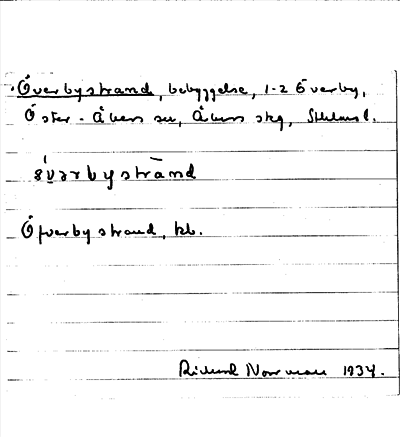 Överbystrand, bebyggelse, 1-2 Överby,
Öster-Åkers sn, Åkers skg, Sthlms l.
övərbystrand
Öfverby strand, kb.
Rickard Norrman 1934.